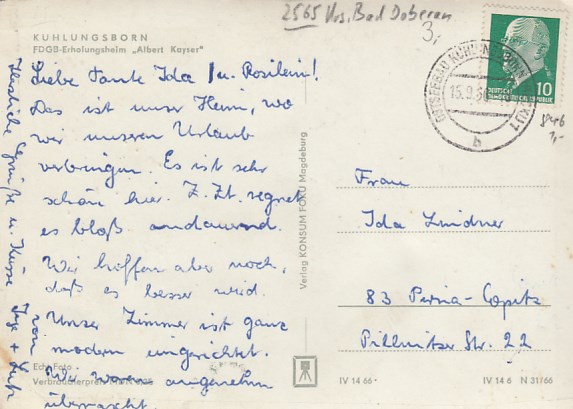 2565 Krs. Bad Doberan
3,-
KÜHLUNGSBORN
FDGB-Erholungsheim „Albert Kayser"
Liebe Tante Ida u. Rosilein!
Das ist unser Heim, wo
wir unseren Urlaub
verbringen. Es ist sehr
schön hier. Z. Zt. regnet
es bloß andauernd.
Wir hoffen aber noch,
daß es besser wird.
Unser Zimmer ist ganz
modern eingerichtet.
Wir waren angenehm
überrascht.
Herzliche Grüße u. Küsse
von
Echt Foto
Verbraucherpreis
Verlag KONSUM FOKU Magdeburg
OSTSEEBAD KÜHLUNGSBORN
15.9.
b
DEUTSCHE
DEMOKRATISCHE REPUBLIK
10
Frau
Ida Lindner
83 Pirna-Copitz
Pillnitzer Str. 22
IV 14 66
IV 14 6 N 31/66